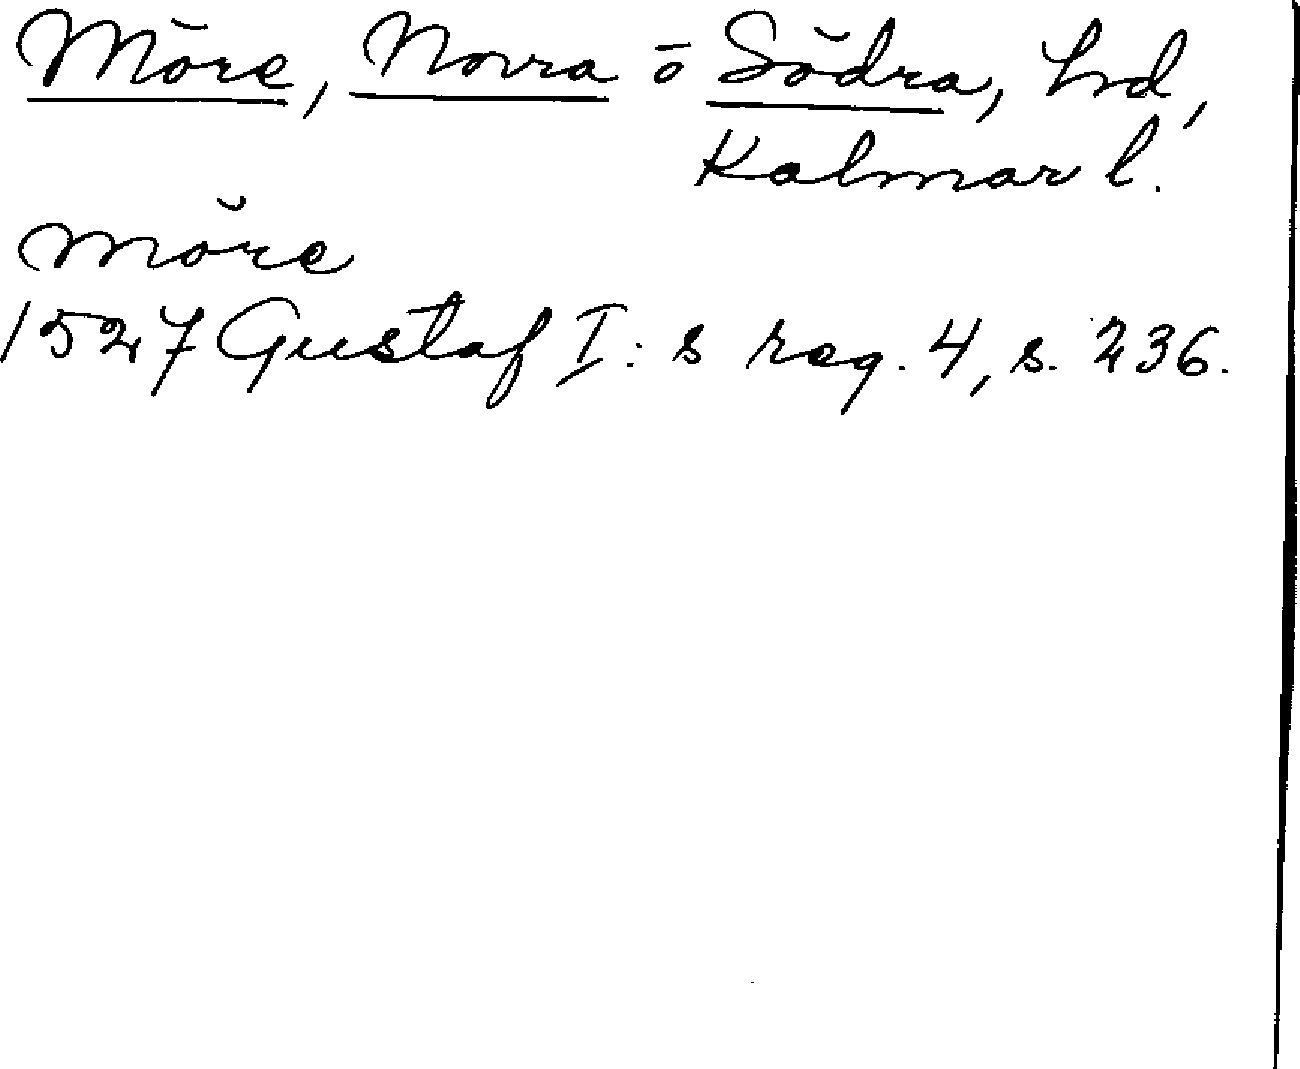 Möre, Norra o Södra, hd,
Kalmar l.
möre
1527 Gustaf I:s reg. 4, s. 236.